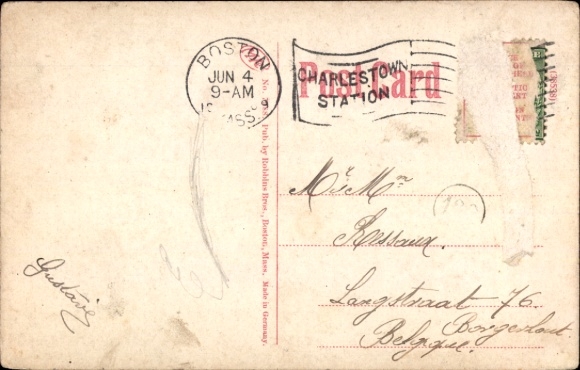 BOSTON
JUN 4
9-AM
MASS.
CHARLESTOWN
STATION
Post Card
Pub. by Robbins Bros., Boston, Mass. Made in Germany.
Mr & Mme
Ressaux.
Langstraat 76.
Borgerhout
Belgique.
Gustave